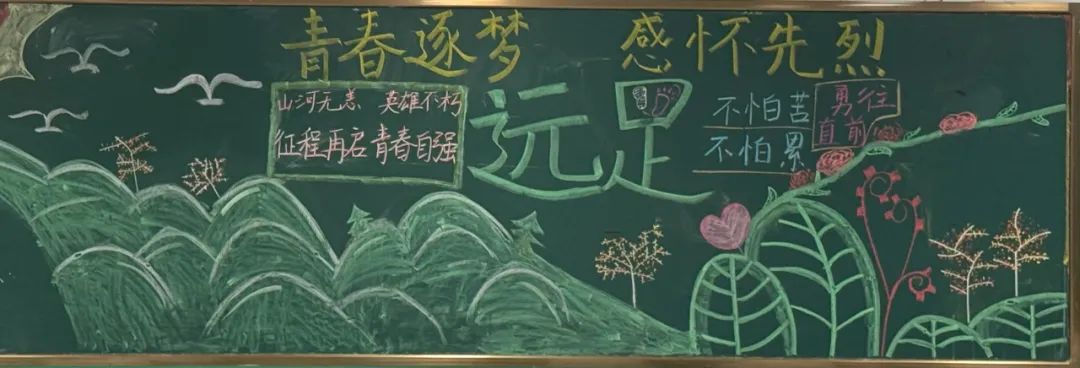 青春逐梦 感怀先烈
山河无恙 英雄不朽
征程再启 青春自强
远足
不怕苦
不怕累
勇往
直前